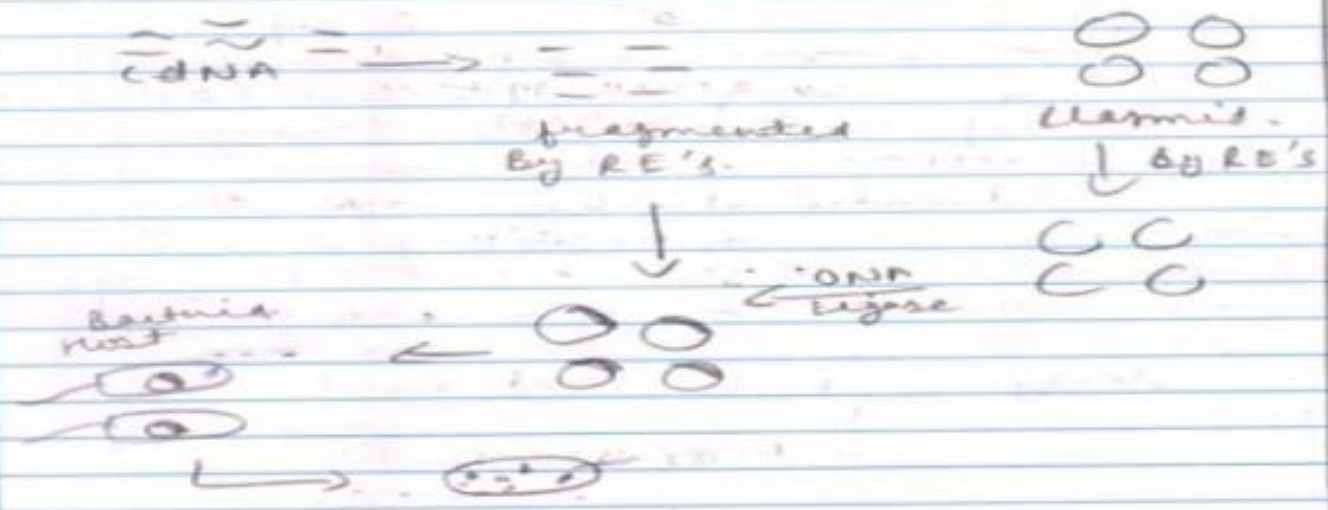 cDNA
fragmented
By RE's.
Plasmid.
By RE's
DNA
Ligase
Bacteria
Host